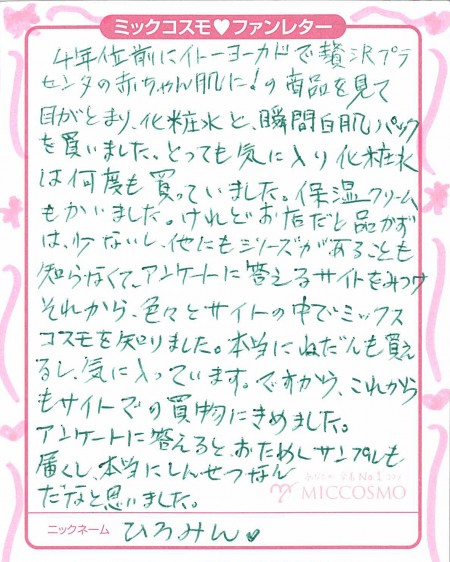 ミックコスモ♥ファンレター
4年位前にイトーヨーカドで贅沢プラ
センタの赤ちゃん肌に!の商品を見て
目がとまり、化粧水と、瞬間白肌パック
を買いました。とっても気に入り化粧水
は何度も買っていました。保温クリーム
もかいました。けれどお店だと品かず
は、少ないし、他にもシリーズがあることも
知らなくて、アンケートに答えるサイトをみつけ
それから、色々とサイトの中でミックス
コスモを知りました。本当にねだんも買え
るし、気に入っています。ですから、これから
もサイトでの買物にきめました。
アンケートに答えると、おためしサンプルも
届くし、本当にしんせつなん
だなと思いました。
MICCOSMO
ニックネーム ひろみん♥